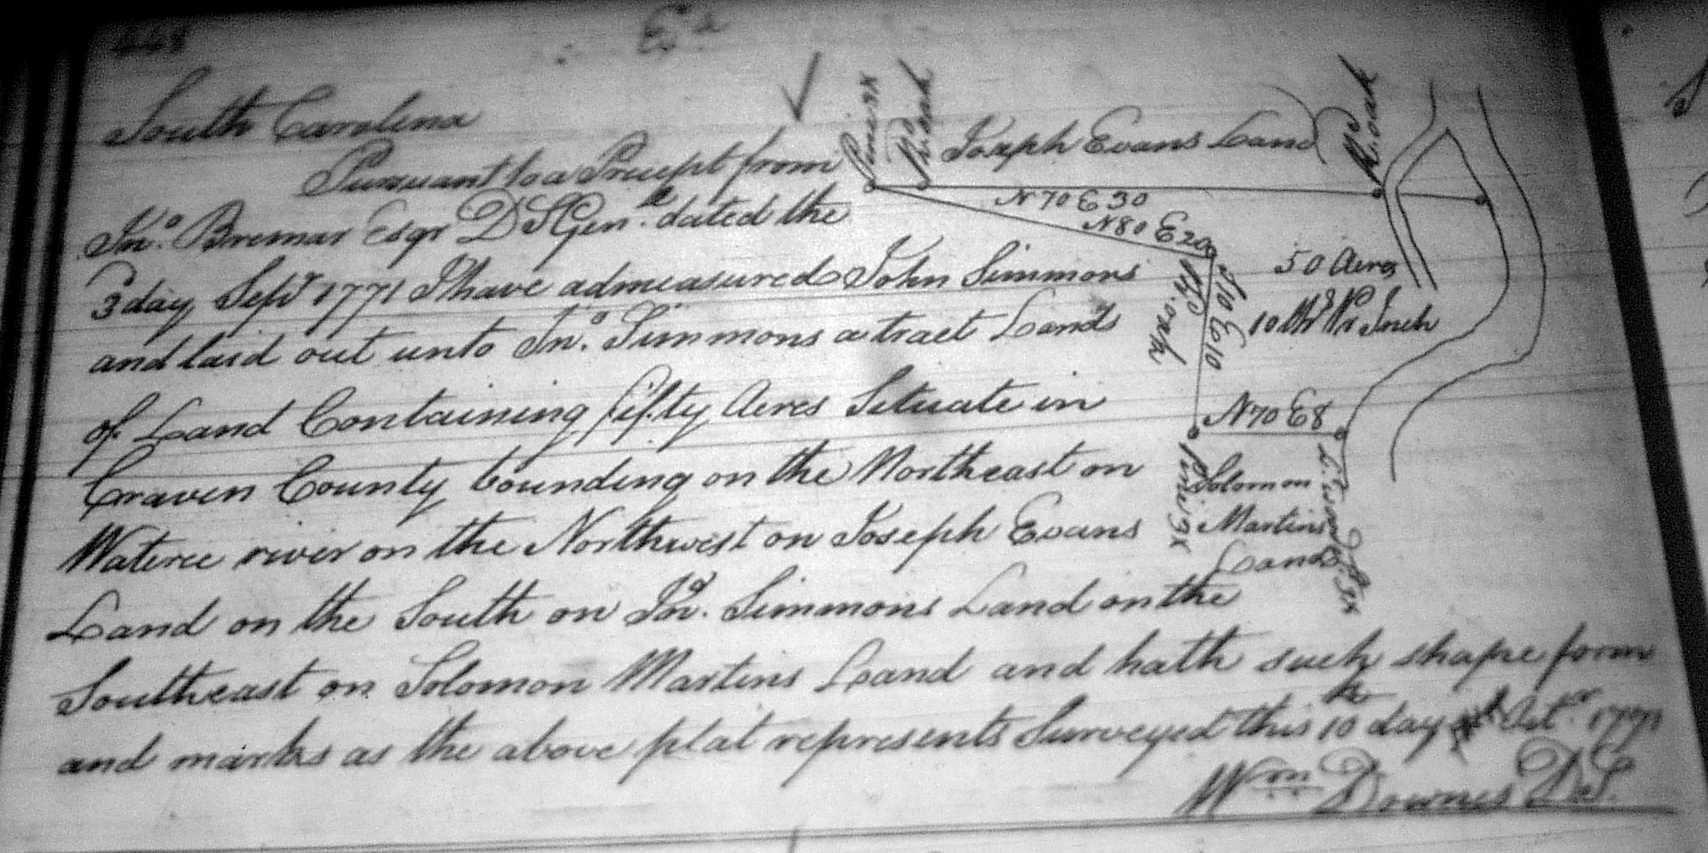 448
Exd
South Carolina
Pursuant to a Precept from
Jno. Bremar Esqr D S Genl. dated the
3 day Sepr 1771 I have admeasured John Simmons
and laid out unto Jno. Simmons a tract Lands
of Land Containing fifty Acres Situate in
Craven County bounding on the Northeast on
Wateree river on the Northwest on Joseph Evans
Land on the South on Jno. Simmons Land on the
Southeast on Solomon Martins Land and hath such shape form
and marks as the above plat represents Surveyed this 10th day of Octr. 1771
Wm Downes D.S.
Pine 3x
R. oak
Joseph Evans Land
R. oak
N 70 E 30
N 80 E 20
50 Acres
S 10 E 10
10 Chs Pr Inch
N 70 E 8
Pine 3x
Solomon
Martins
Land